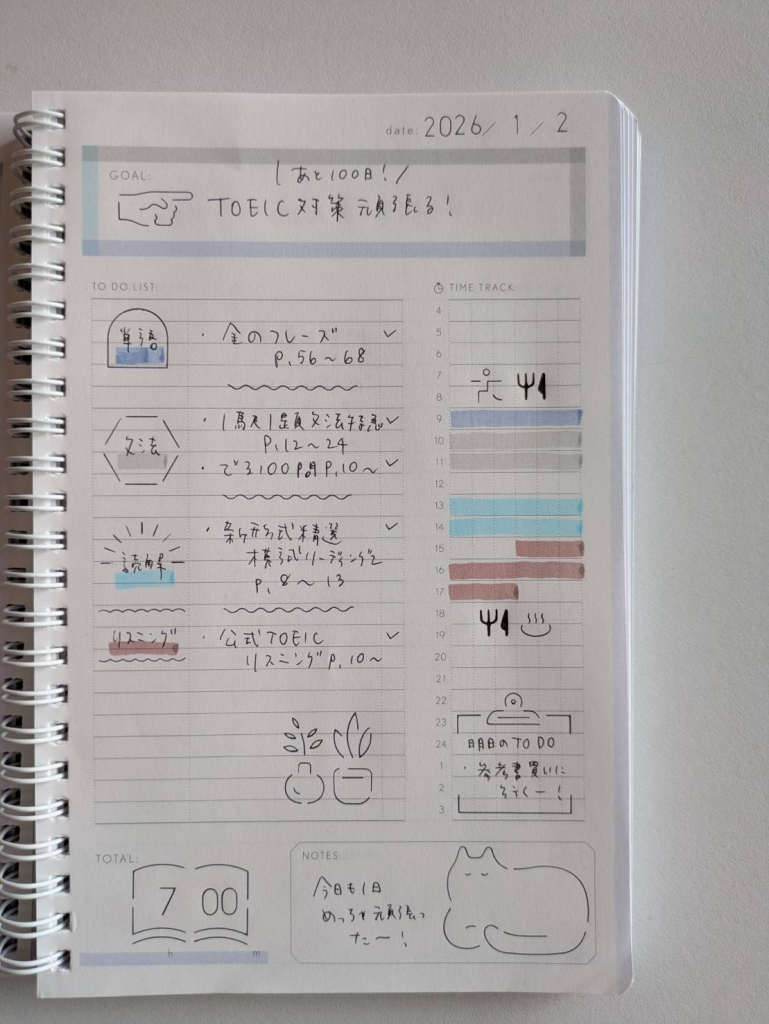 date: 2026/ 1 / 2
GOAL:
\ あと100日! /
TOEIC 対策 頑張る!
TO DO LIST:
単語
・金のフレーズ ✓
P.56〜68
文法
・1駅1題文法特急 ✓
P.12〜24
・でる100問 P.10〜 ✓
読解
・新形式精選 ✓
模試リーディング2
P.8〜13
リスニング
・公式TOEIC ✓
リスニング P.10〜
TIME TRACK:
4
5
6
7
8
9
10
11
12
13
14
15
16
17
18
19
20
21
22
23
24
1
2
3
明日のTO DO
・参考書買いに
いく〜!
TOTAL:
7 00
h m
NOTES:
今日も1日
めっちゃ頑張っ
たー!